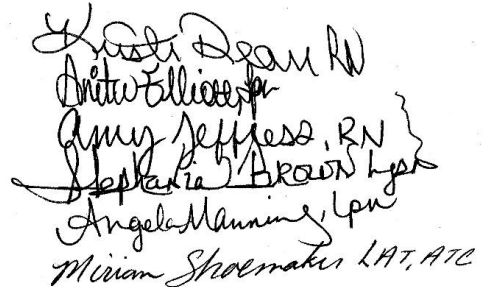 Kristi Dean RN
Anita Elliott, lpn
Amy Jeffress, RN
Stephania Brown Lpn
Angela Manning, lpn
Miriam Shoemaker LAT, ATC